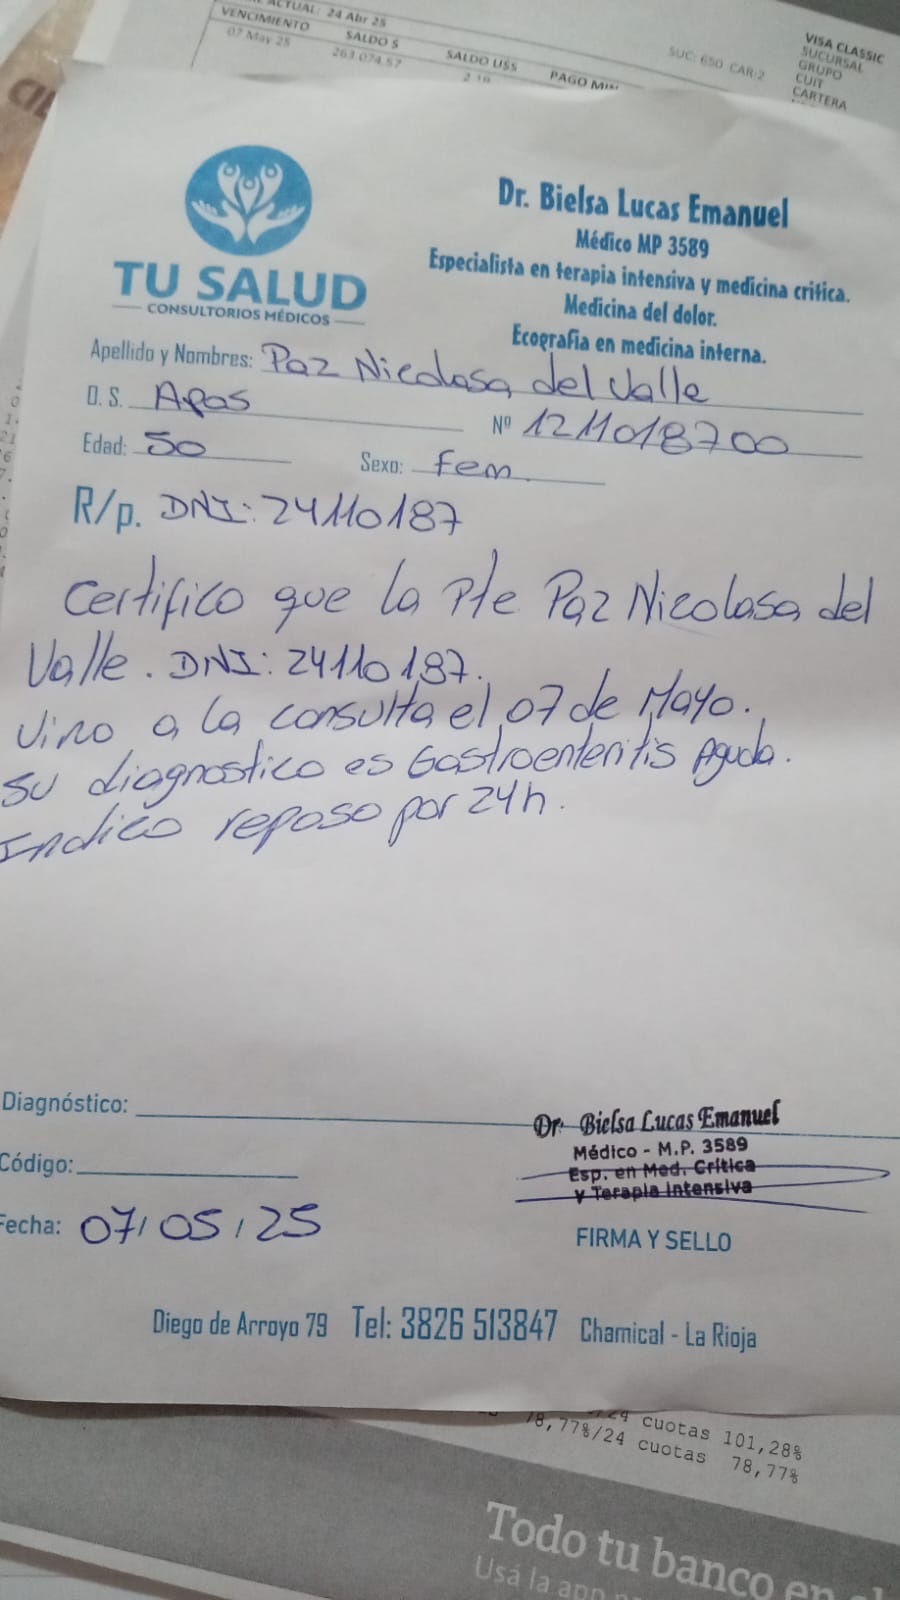 ACTUAL: 24 Abr 25
VENCIMIENTO SALDO $ SALDO U$S
07 May 25 263.074,57 2,19
SUC: 650 CAR:2
VISA CLASSIC
SUCURSAL
GRUPO
CUIT
CARTERA
TU SALUD
CONSULTORIOS MÉDICOS
Dr. Bielsa Lucas Emanuel
Médico MP 3589
Especialista en terapia intensiva y medicina critica.
Medicina del dolor.
Ecografia en medicina interna.
Apellido y Nombres: Paz Nicolasa del Valle
O. S. Apos Nº 1211018700
Edad: 50 Sexo: Fem.
R/p. DNI: 24110187
Certifico que la Pte Paz Nicolasa del
Valle. DNI: 24110187.
Vino a la consulta el 07 de Mayo.
su diagnostico es Gastroenteritis Aguda.
Indico reposo por 24h.
Diagnóstico:
Dr. Bielsa Lucas Emanuel
Médico - M.P. 3589
Esp. en Med. Crítica
y Terapia Intensiva
Código:
Fecha: 07/05/25
FIRMA Y SELLO
Diego de Arroyo 79 Tel: 3826 513847 Chamical - La Rioja
/24 cuotas 101,28%
78,77%/24 cuotas 78,77%
Todo tu banco en
Usá la app